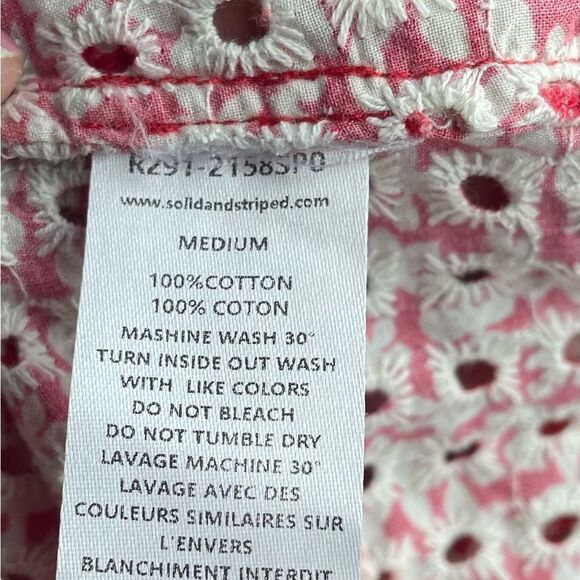 R291-2158SP0
www.solidandstriped.com
MEDIUM
100%COTTON
100% COTON
MASHINE WASH 30°
TURN INSIDE OUT WASH
WITH LIKE COLORS
DO NOT BLEACH
DO NOT TUMBLE DRY
LAVAGE MACHINE 30°
LAVAGE AVEC DES
COULEURS SIMILAIRES SUR
L'ENVERS
BLANCHIMENT INTERDIT